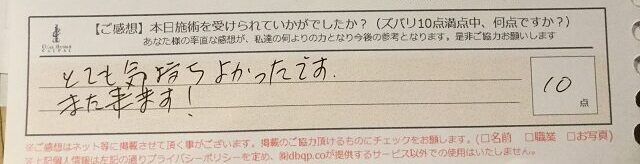 【ご感想】本日施術を受けられていかがでしたか？（ズバリ10点満点中、何点ですか？）
あなた様の率直な感想が、私達の何よりの力となり今後の参考となります。是非ご協力お願いします
とても気持ちよかったです．
また来ます！
10
点
※ご感想はネット等に掲載させて頂く事がございます。掲載のご協力頂けるものにチェックをお願します。（□名前　□職業　□お写真）
※上記個人情報は左記の通りプライバシーポリシーを定め、㈱dbqp.coが提供するサービス以外での使用はいたしません。